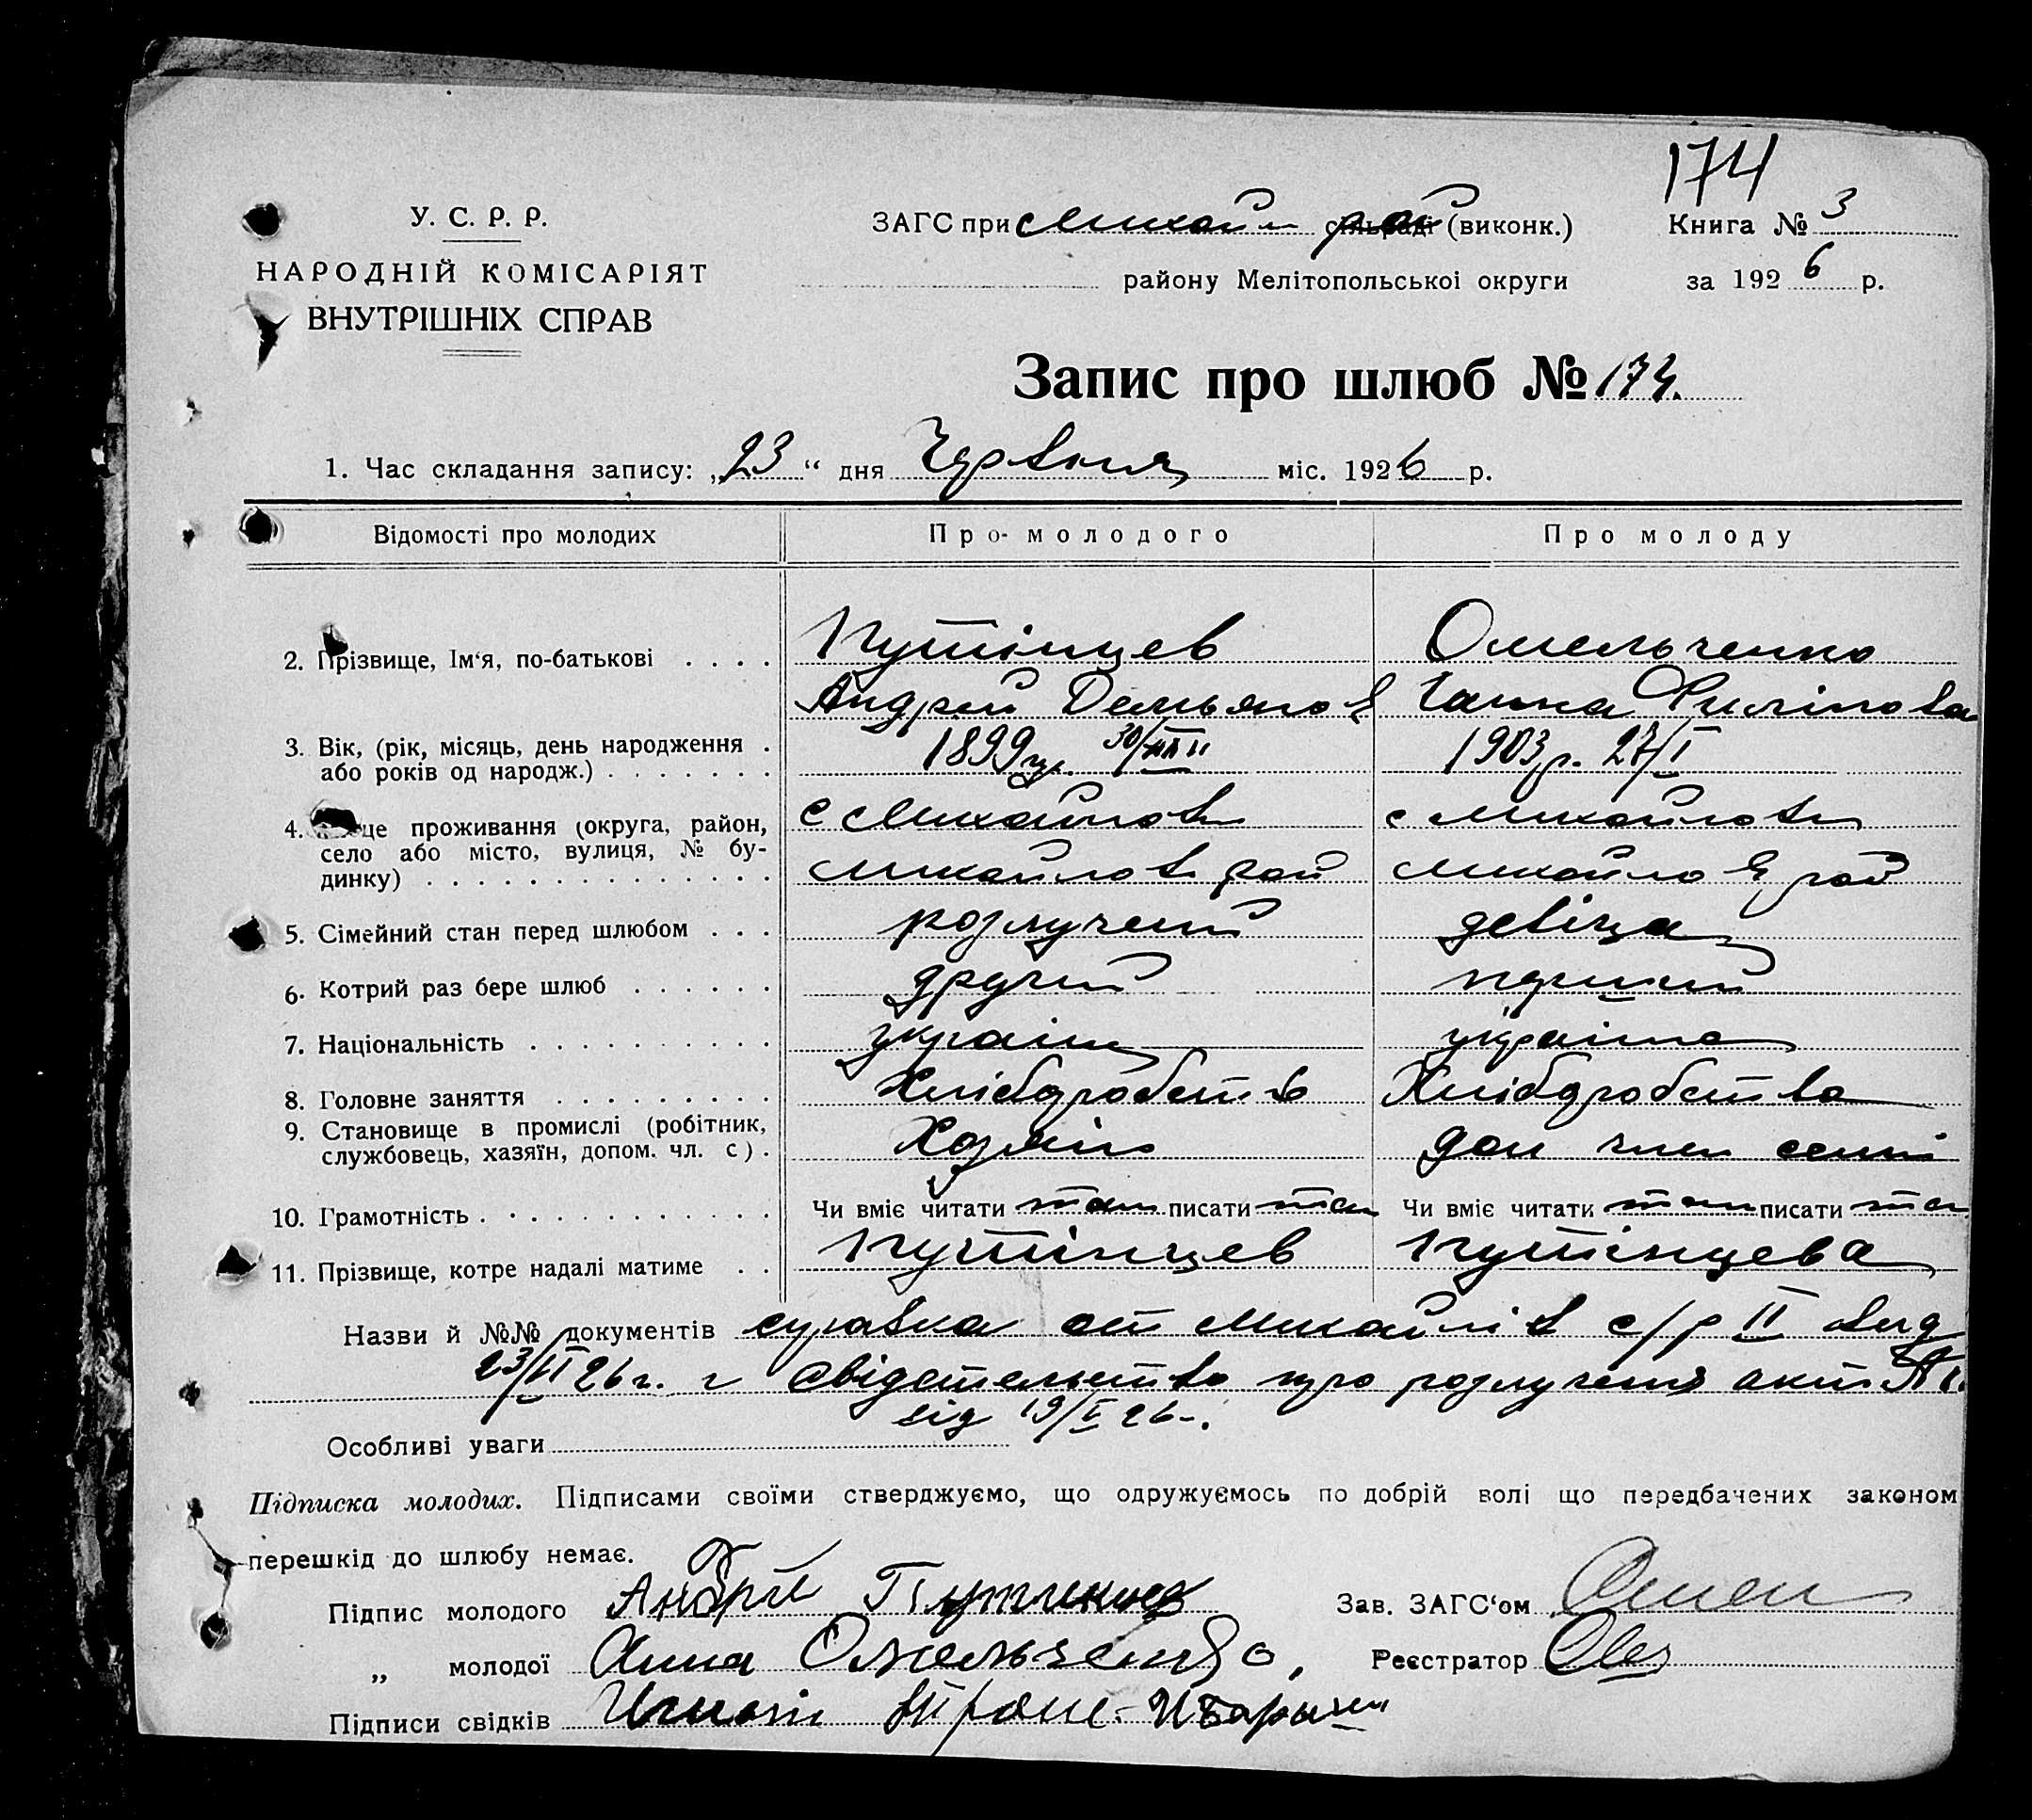 174
У. С. Р. Р.
НАРОДНІЙ КОМІСАРІЯТ
ВНУТРІШНІХ СПРАВ
ЗАГС при Михайл сільраді рай (виконк.)
району Мелітопольської округи
Книга № 3
за 1926 р.
Запис про шлюб № 174.
1. Час складання запису: „23“ дня Червня міс. 1926 р.
Відомості про молодих Про молодого Про молоду
2. Прізвище, Ім‘я, по-батькові . . . . Путінцев Омельченко
Андрей Демьянов Ганна Филіпова
3. Вік, (рік, місяць, день народження . 1899 р. 30/ 1903 р. 27/I
або років од народж.) . . . . . . .
4. це проживання (округа, район, с Михайловк с Михайловк
село або місто, вулиця, № бу-
динку) . . . . . . . . . . . . . . Михайлов рай Михайлов рай
5. Сімейний стан перед шлюбом . . . розлучений девіца
6. Котрий раз бере шлюб . . . . . . другий перший
7. Національність . . . . . . . . . . українц українка
8. Головне заняття . . . . . . . . . Хлібдробств Хлібдробства
9. Становище в промислі (робітник, Хозяін доп член семьі
службовець, хазяїн, допом. чл. с) .
10. Грамотність . . . . . . . . . . . . Чи вміє читати так писати так Чи вміє читати так писати так
11. Прізвище, котре надалі матиме . . Путінцев Путінцева
Назви й №№ документів справка от Михайлів с/р II від
23/VI 26 г. і свідетельство про розлученія акт №
від 19/V 26.
Особливі уваги
Підписка молодих. Підписами своїми стверджуємо, що одружуємось по добрій волі що передбачених законом
перешкід до шлюбу немає.
Підпис молодого Андрій Путинцев Зав. ЗАГС‘ом
„ молодої Анна Омельченко, Реєстратор
Підписи свідків